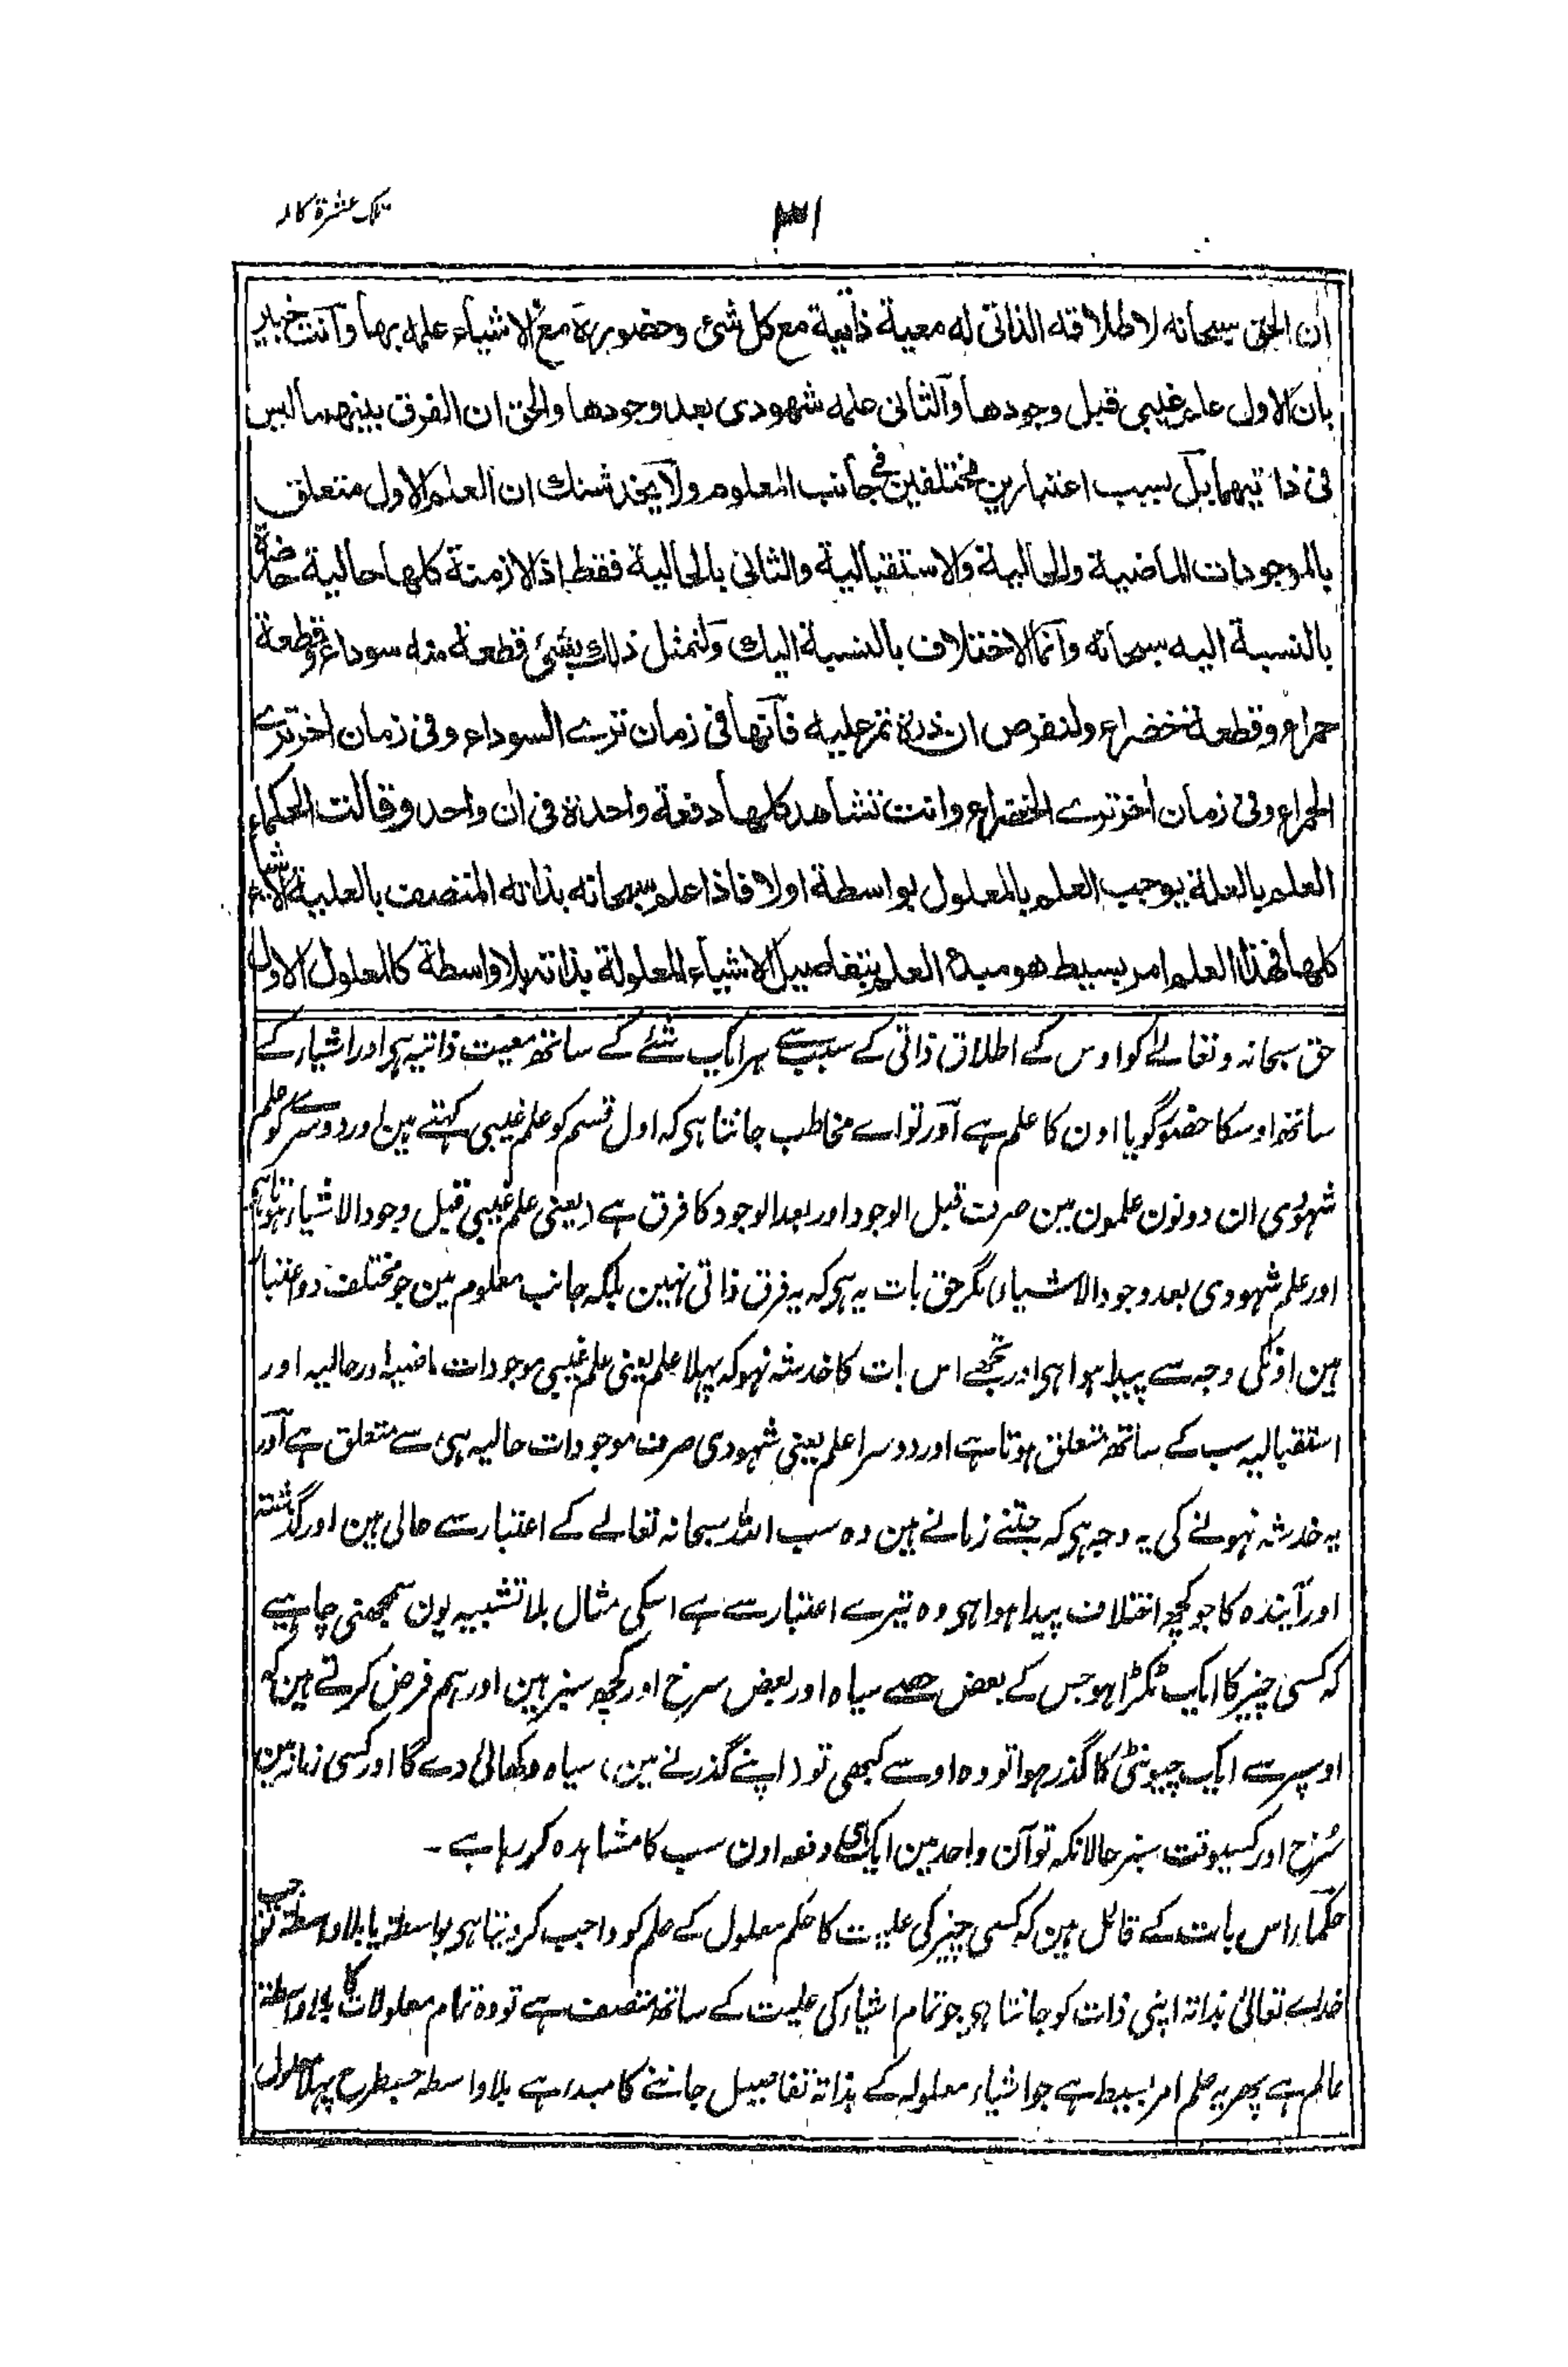 تلک عشرة کاملہ
۳۱
ان الحق سبحانه لاطلاقه الذاتى له معية ذاتية مع كل شئ وحضوره مع الاشياء علمه بها وانت خبير
بان الاول علم غيبى قبل وجودها والثانى علمه شهودى بعد وجودها والحق ان الفرق بينهما ليس
فى ذاتيهما بل بسبب اعتبارين مختلفين فى جانب المعلوم ولا يخدشنك ان العلم الاول متعلق
بالموجودات الماضية والحالية والاستقبالية والثانى بالحالية فقط اذ الازمنة كلها حالية حاضرة
بالنسبة اليه سبحانه وانما الاختلاف بالنسبة اليك ولنمثل ذلك بشئ قطعة منه سوداء وقطعة
حمراء وقطعة خضراء ولنفرض ان ذرة تمر عليه فانها فى زمان ترے السوداء وفى زمان اخر ترے
الحمراء وفى زمان اخر ترے الخضراء وانت تشاهد كلها دفعة واحدة فى ان واحد وقالت الحكماء
العلم بالعلة يوجب العلم بالمعلول بواسطة اولا فاذا علم سبحانه بذاته المتصف بالعلية الاشياء
كلها فهذا العلم امر بسيط هو مبدء العلم بتفاصيل الاشياء المعلولة بذاته بلا واسطة كالمعلول الاول
حق سبحانہ وتعالےٰ کو اوس کے اطلاق ذاتی کے سبب سے ہر ایک شئے کے ساتھ معیت ذاتیہ ہی اور اشیاء کے
ساتھ اوسکا حضور گویا اون کا علم ہے اور تو اے مخاطب جانتا ہی کہ اول قسم کو علم غیبی کہتے ہین اور دوسرے کو علم
شہودی ان دونون علمون مین صرف قبل الوجود اور بعد الوجود کا فرق ہے (یعنی علم غیبی قبل وجود الاشیاء ہوتا ہی
اور علم شہودی بعد وجود الاشیاء) مگر حق بات یہ ہی کہ یہ فرق ذاتی نہین بلکہ جانب معلوم مین جو مختلف دو اعتبار
ہین اونکی وجہ سے پیدا ہوا ہی اور تجھے اس بات کا خدشہ نہو کہ پہلا علم یعنی علم غیبی موجودات ماضیہ اور حالیہ اور
استقبالیہ سب کے ساتھ متعلق ہوتا ہے اور دوسرا علم یعنی شہودی صرف موجودات حالیہ ہی سے متعلق ہے اور
یہ خدشہ نہونے کی یہ وجہ ہی کہ جتنے زمانے ہین وہ سب اللہ سبحانہ تعالے کے اعتبار سے حالی ہین اور گذشتہ
اور آیندہ کا جو کچھ اختلاف پیدا ہوا ہی وہ تیرے اعتبار سے ہے اسکی مثال بلا تشبیہ یون سمجھنی چاہیے
کہ کسی چیز کا ایک ٹکڑا ہو جس کے بعض حصے سیاہ اور بعض سرخ اور کچھ سبز ہین اور ہم فرض کرتے ہین کہ
اوسپر سے ایک چیونٹی کا گذر ہوا تو وہ اوسے کبھی تو (اپنے گذرنے مین) سیاہ دکھائی دے گا اور کسی زمانہ مین
سُرخ اور کسیوقت سبز حالانکہ تو آن واحد مین ایک ہی دفعہ اون سب کا مشاہدہ کر رہا ہے ۔
حکماء اس بات کے قائل ہین کہ کسی چیز کی علیت کا علم معلول کے علم کو واجب کر دیتا ہی بواسطہ یا بلا واسطہ تو جب
خداے تعالیٰ بذاتہ اپنی ذات کو جانتا ہی جو تمام اشیاء کی علیت کے ساتھ متصف ہے تو وہ تمام معلولات کا بلا واسطہ
عالم ہے پھر یہ علم امر بسیط ہے جو اشیاء معلولہ کے بذاتہ تفاصیل جاننے کا مبدء ہے بلا واسطہ جسطرح پہلا معلول